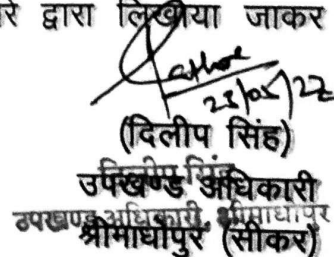 रे द्वारा लिखाया जाकर
23/05/22
(दिलीप सिंह)
दिलीप सिंह
उपखण्ड अधिकारी
उपखण्ड अधिकारी, श्रीमाधोपुर
श्रीमाधोपुर (सीकर)